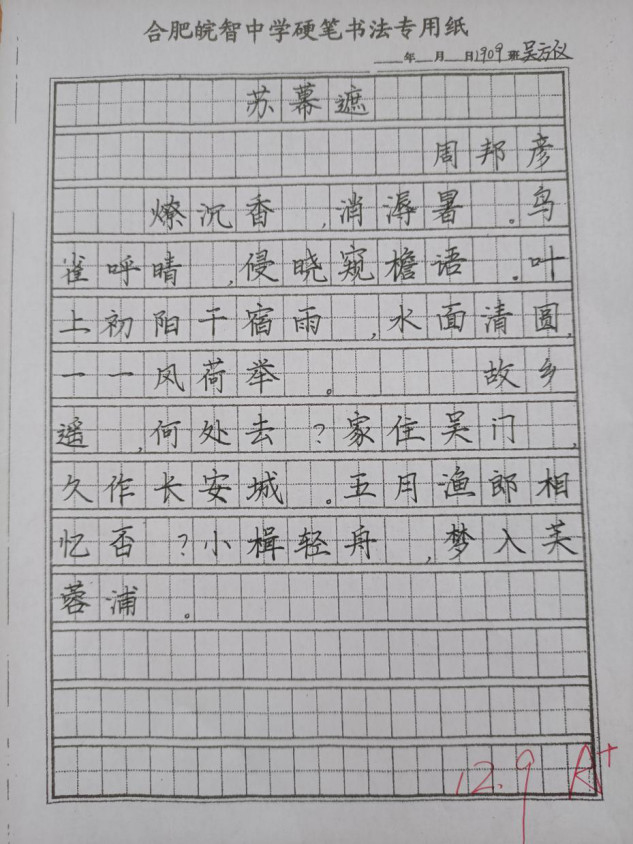 合肥皖智中学硬笔书法专用纸
年 月 日 1909 班 吴方仪
苏幕遮
周邦彦
燎沉香,消溽暑。鸟
雀呼晴,侵晓窥檐语。叶
上初阳干宿雨,水面清圆,
一一风荷举。 故乡
遥,何处去?家住吴门,
久作长安城。五月渔郎相
忆否?小楫轻舟,梦入芙
蓉浦。
12.9 A+